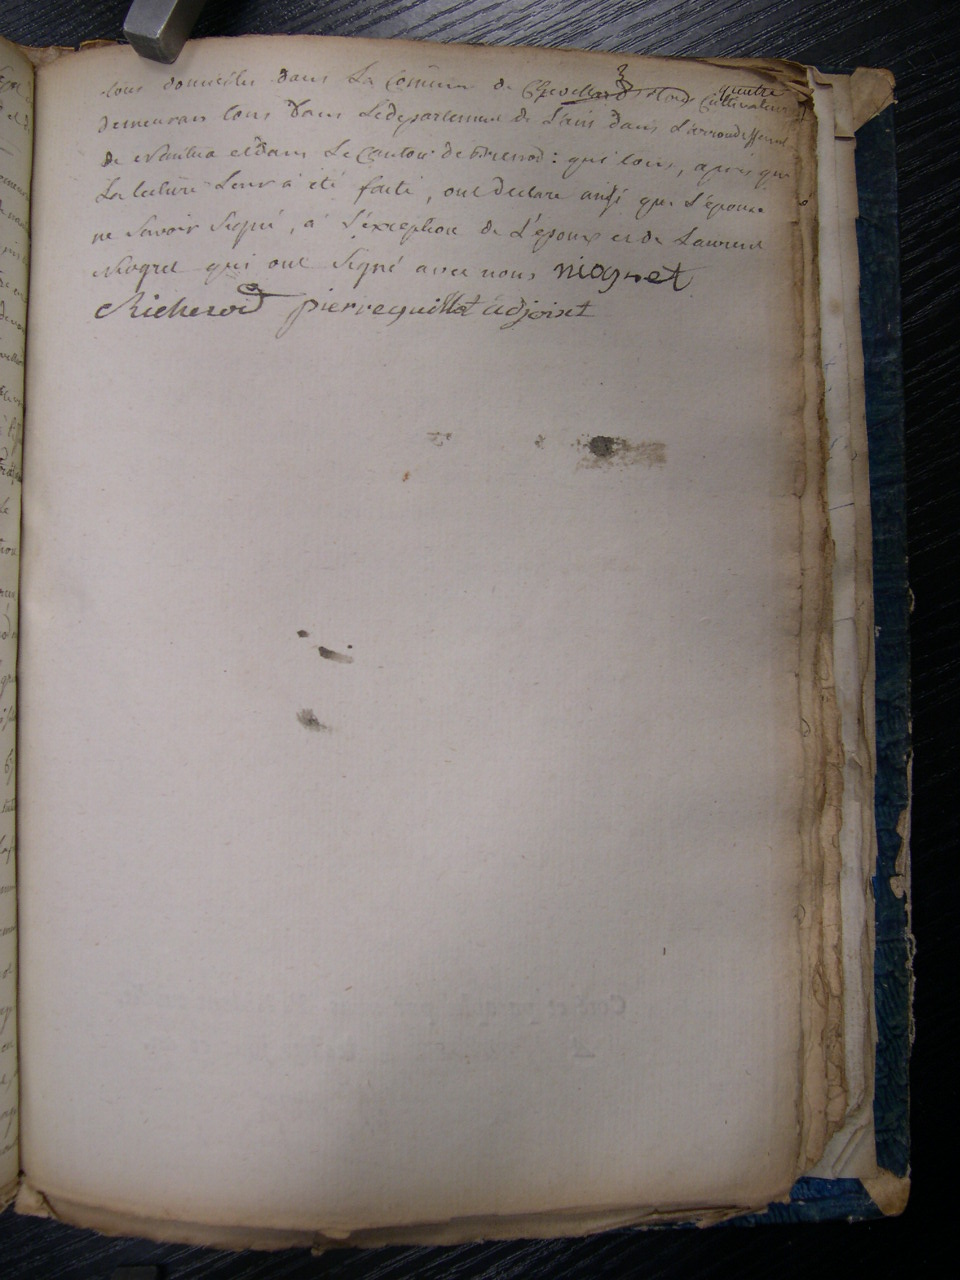 tous domiciliés dans La Commune de Chevillard tous quatre Cultivateurs
demeurans tous dans Ledepartement de L'ain dans L'arrondissement
de Nantua et dans Le Canton de Brenod : qui tous, après que
La lecture Leur a été faite, ont declaré ainsi que L'épouse
ne Savoir Signé, à L'exception de L'époux et de Laurent
Niogret qui ont Signé avec nous niogret
Richerod pierre guillot adjoint